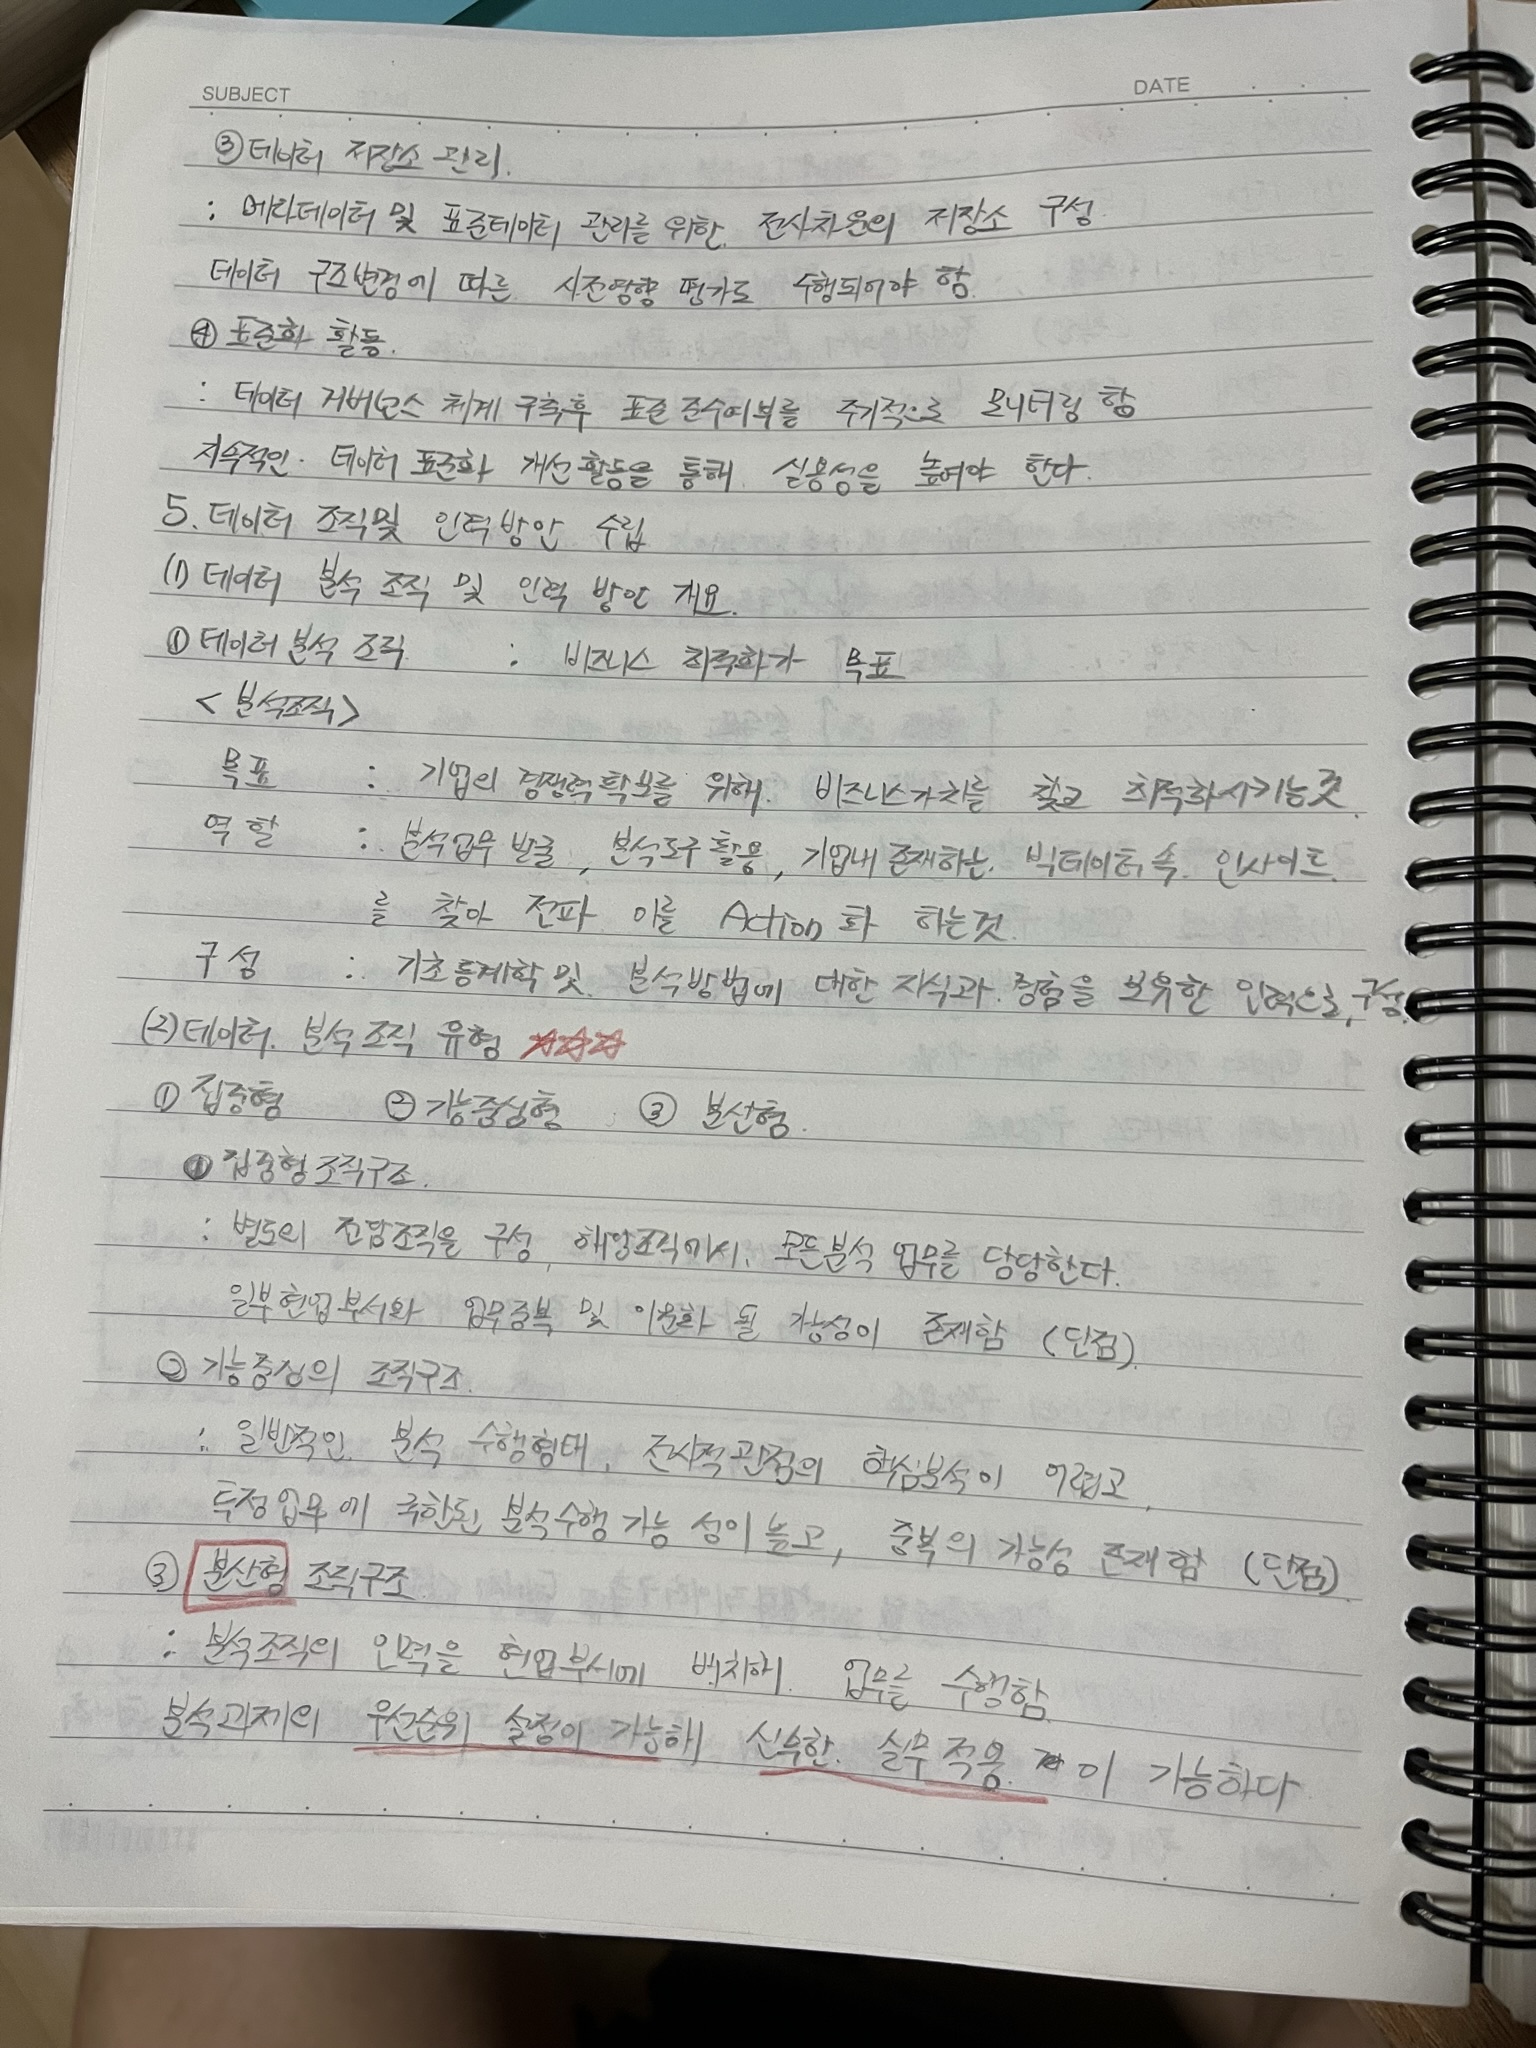 SUBJECT
DATE
③ 데이터 저장소 관리.
: 메타데이터 및 표준데이터 관리를 위한 전사차원의 저장소 구성.
데이터 구조변경에 따른 사전영향 평가도 수행되어야 함.
④ 표준화 활동.
: 데이터 거버넌스 체계 구축후 표준 준수여부를 주기적으로 모니터링 함
지속적인 데이터 표준화 개선 활동을 통해 실용성을 높여야 한다.
5. 데이터 조직 및 인력방안 수립
(1) 데이터 분석 조직 및 인력 방안 개요.
① 데이터 분석 조직 : 비즈니스 최적화가 목표
<분석조직>
목표 : 기업의 경쟁력 확보를 위해 비즈니스가치를 찾고 최적화시키는것
역할 : 분석업무 발굴, 분석도구 활용, 기업내 존재하는 빅데이터 속 인사이트
를 찾아 전파 이를 Action화 하는것
구성 : 기초통계학 및 분석방법에 대한 지식과 경험을 보유한 인력으로 구성.
(2) 데이터 분석 조직 유형 ☆☆☆
① 집중형 ② 기능중심형 ③ 분산형.
① 집중형 조직구조.
: 별도의 전담조직을 구성, 해당조직에서 모든분석 업무를 담당한다.
일부현업부서와 업무중복 및 이원화 될 가능성이 존재함 (단점).
② 기능중심의 조직구조.
: 일반적인 분석 수행형태, 전사적관점의 핵심분석이 어렵고,
특정업무에 국한된 분석수행 가능성이 높고, 중복의 가능성 존재함 (단점)
③ 분산형 조직구조.
: 분석조직의 인력을 현업부서에 배치해 업무를 수행함
분석과제의 우선순위 설정이 가능해 신속한 실무적용이 가능하다